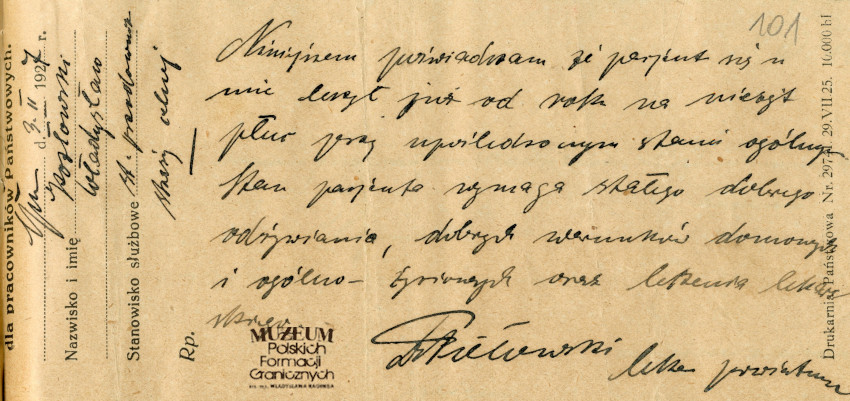 101
dla pracowników Państwowych.
d. 3. II 1927 r.
Nazwisko i imię Kozłowski
Władysław
Stanowisko służbowe st. przodownik
straży celnej
Rp.
Niniejszem poświadczam że pacjent się u
mnie leczył już od roku na nieżyt
płuc przy upośledzonym stanie ogólnym
Stan pacjenta wymaga stałego dobrego
odżywiania, dobrych warunków domowych
i ogólno- życiowych oraz leczenia lekar
skiego
lekarz powiatowy
MUZEUM
Polskich
Formacji
Granicznych
Drukarnia Państwowa Nr. 29.VII 25. 10.000 bl